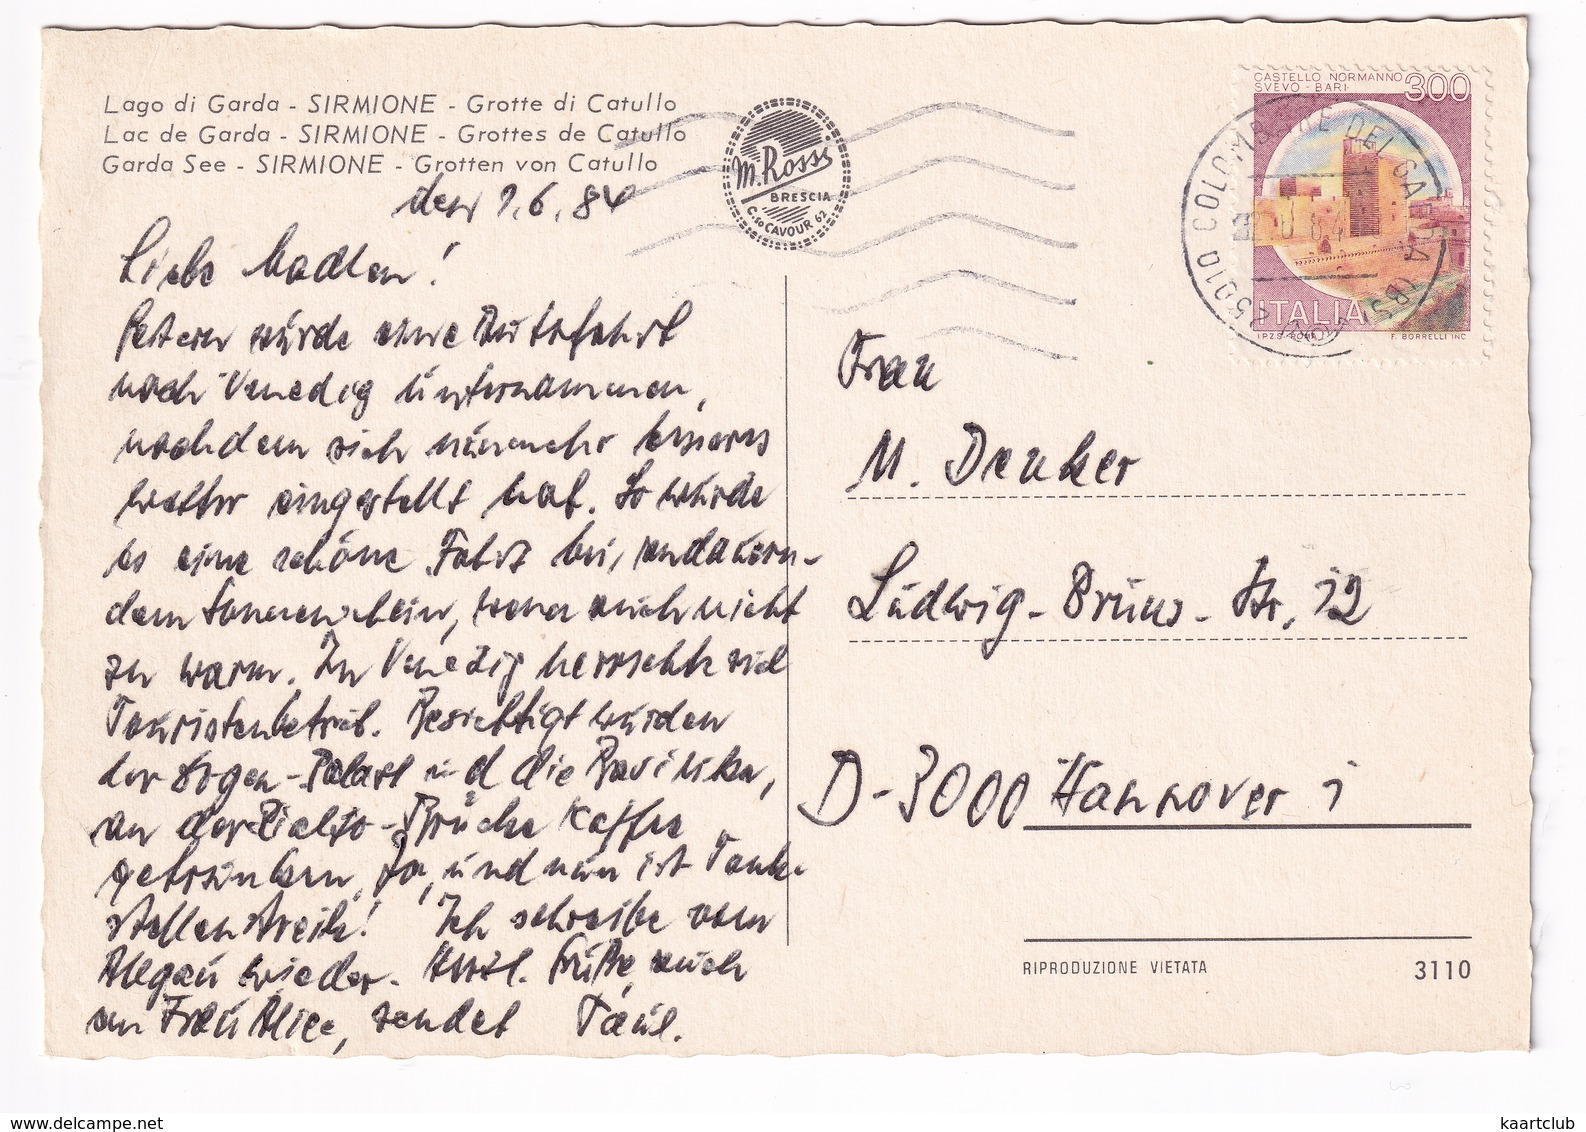 Lago di Garda - SIRMIONE - Grotte di Catullo
Lac de Garda - SIRMIONE - Grottes de Catullo
Garda See - SIRMIONE - Grotten von Catullo
M. Rossi
BRESCIA
C.so CAVOUR 62
CASTELLO NORMANNO
SVEVO - BARI
300
ITALIA
I.P.Z.S. - ROMA
F. BORRELLI INC
25010 COLOMBARE DEL GARDA (BS)
84
den 1.6.84
Liebe Madlen!
Gestern würde eine Autofahrt
nach Venedig unternommen,
nachdem sich nunmehr besseres
Wetter eingestellt hat. So wurde
es eine schöne Fahrt bei, andauern-
dem Sonnenschein, wenn auch nicht
zu warm. In Venedig herrschte viel
Touristenbetrieb. Besichtigt wurden
der Dogen-Palast und die Basilika,
an der Rialto-Brücke Kaffee
getrunken. Ja, und nun ist Tank-
stellenstreik! Ich schreibe vom
Allgäu wieder. Herzl. Grüße, auch
an Frau Alice, sendet Paul.
Frau
M. Denker
Ludwig-Bruns-Str. 12
D-3000 Hannover 1
RIPRODUZIONE VIETATA
3110
www.delcampe.net
kaartclub